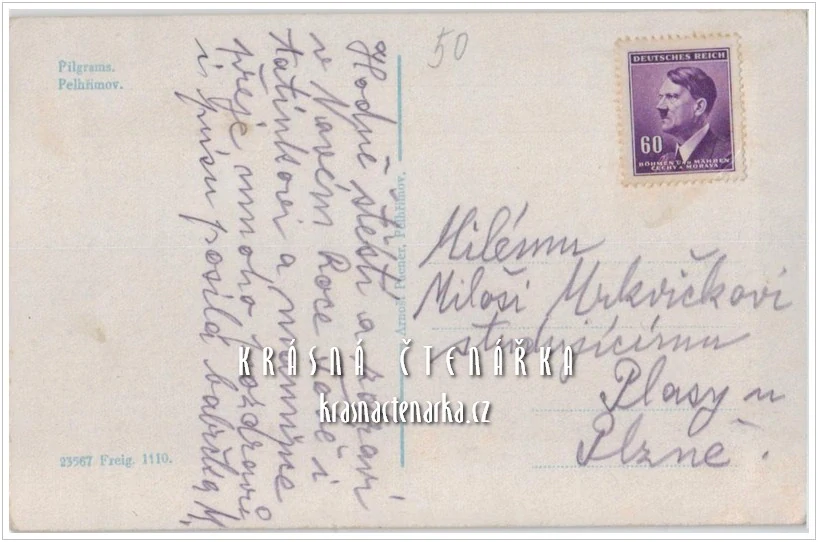 Pilgrams.
Pelhřimov.
50
DEUTSCHES REICH
60
BÖHMEN UND MÄHREN
ČECHY A MORAVA
Hodně štěstí a zdraví
v Novém Roce Tobě i
tatínkovi a mamince
přeje mnoho pozdravů
i pusu posílá babička M.
Arnošt Porner, Pelhřimov.
Milému
Miloši Mrkvičkovi
studujícímu
Plasy u
Plzně.
KRÁSNÁ ČTENÁŘKA
krasnactenarka.cz
23567 Freig. 1110.